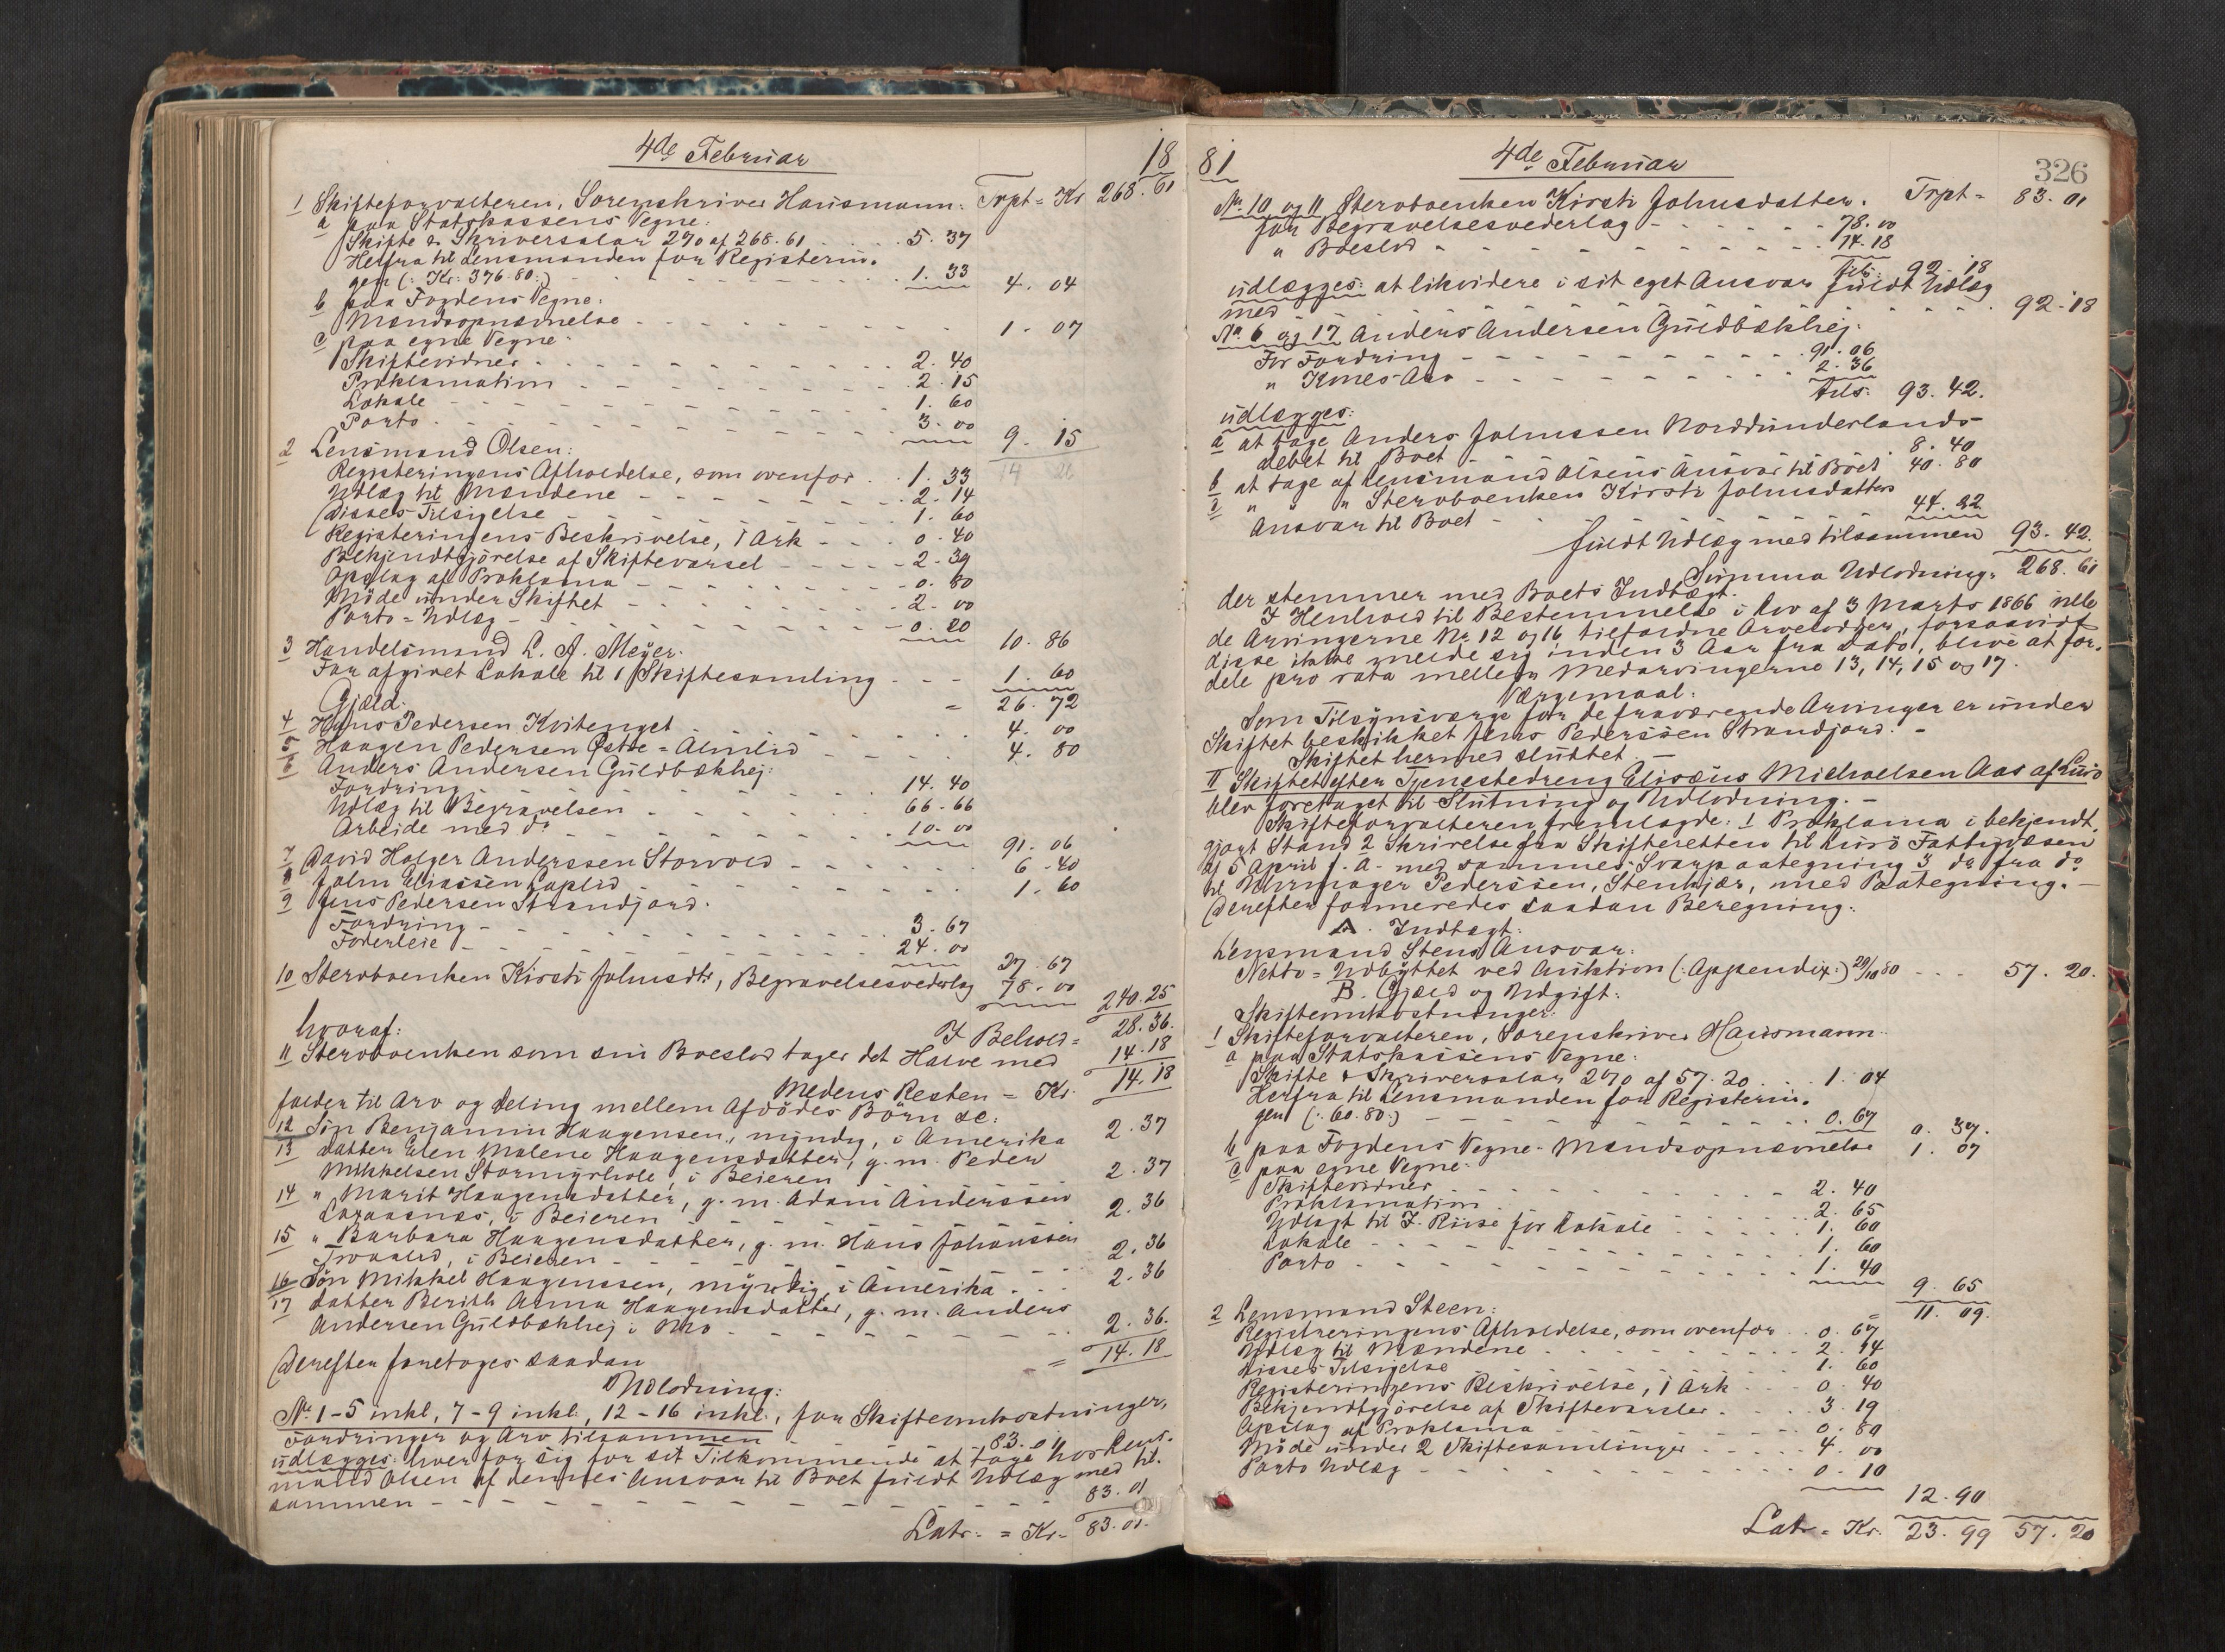 4de Februar
18
1 Skifteforvalteren, Sorenskriver Hausmann: Trpt = Kr 268.61
a paa Statskassens Vegne:
Skifte & Skriversalar 2% af 268.61 5.37
Herfra til Lensmanden for Registerin-
gen (: Kr. 376.80:) 1.33 4.04
b paa Fogdens Vegne:
Mandsopnævnelse 1.07
c paa egne Vegne:
Skiftevidner 2.40
Proklamation 2.15
Lokale 1.60
Porto 3.00 9.15
2 Lensmand Olsen: 14 26
Registeringens Afholdelse, som ovenfor 1.33
Udlæg til Mændene 2.14
Disses Tilsigelse 1.60
Registeringens Beskrivelse, 1 Ark 0.40
Bekjendtgjörelse af Skiftevarsel 2.39
Opslag af Proklama 0.80
Möde under Skiftet 2.00
Porto=Udlæg 0.20 10.86
3 Handelsmand L. A. Meyer:
For afgivet Lokale til 1 Skiftesamling 1.60
Gjæld. = 26.72
4 Hans Pedersen Kvitenget 4.00
5 Haagen Pedersen Østre=Almlid 4.80
6 Anders Andersen Guldbækhej:
Fordring 14.40
Udlæg til Begravelsen 66.66
Arbeide med do 10.00 91.06
7 David Holger Anderssen Storvold 6.40
8 John Eliassen Laplid 1.60
9 Jens Pedersen Strandjord:
Fordring 3.67
Foderleie 24.00 27.67
10 Stervboenken Kirsti Johnsdtr, Begravelsesvederlag 78.00 240.25
I Behold = 28.36.
hvoraf:
11 Stervboenken som sin Boeslod tager det Halve med 14.18
Medens Resten = Kr. 14.18
falder til Arv og deling mellem Afdödes Börn se:
12 Sön Benjamin Haagensen, myndig, i Amerika 2.37
13 datter Elen Malene Haagensdatter, g. m. Peder
Mikkelsen Stormyrhole, i Beieren 2.37
14 " Marit Haagensdatter, g. m. Adam Anderssen
Larsosnæs, i Beieren 2.36
15 " Barbara Haagensdatter, g. m. Hans Johanssen
Trolid, i Beieren 2.36
16 Sön Mikkel Haagenssen, myndig, i Amerika 2.36
17 datter Berith Anna Haagensdatter, g. m. Anders
Andersen Guldbækhej i Mo 2.36.
= 14.18
Derefter foretages saadan
Udlodning:
No 1-5 inkl, 7-9 inkl, 12-16 inkl, for Skifteomkostninger,
Fordringer og Arv tilsammen 83.01
udlægges: hver for sig for sit Tilkommende at tage hos Lens-
mand Olsen af dennes Ansvar til Boet fuldt Udlæg med til-
sammen 83.01
Latr. = Kr. 83.01.
81
4de Februar
326
Trpt = 83.01
No 10 og 11 Stervboenken Kirsti Johnsdatter.
for Begravelsesvederlag 78.00
" Boeslod 14.18
tils: 92.18
udlægges: at likvidere i sit eget Ansvar fuldt Udlæg
med 92.18
No 6 og 17 Anders Andersen Guldbækhej:
For Fordring 91.06
" Kones Arv 2.36
tils: 93.42.
udlægges:
a at tage Anders Johnssen Norddunderlands-
debet til Boet 8.40
b at tage af Lensmand Olsens Ansvar til Boet 40.80
c " " " Stervboenken Kirsti Johnsdatters
Ansvar til Boet 44.22
fuldt Udlæg med tilsammen 93.42.
Summa Udlodning: 268.61
der stemmer med Boets Indtægt.
I Henhold til Bestemmelse i Lov af 3 Marts 1866 ville
de Arvingerne No 12 og 16 tilfaldne Arvelodder, forsaavidt
disse ikke melde sig inden 3 Aar fra dato, blive at for-
dele pro rata mellem Medarvingerne 13, 14, 15 og 17.
Værgemaal:
Som Tilsynsværge for de fraværende Arvinger er under
Skiftet beskikket Jens Pederssen Strandjord. –
Skiftet hermed sluttet. –
II Skiftet efter Tjenestedreng Elisæus Michaelsen Aas af Lurö
blev foretaget til Slutning og Udlodning. –
Skifteforvalteren fremlagde: 1 Proklama i bekjendt-
gjort Stand 2 Skrivelse fra Skifteretten til Lurö Fattigvæsen
af 5 April f. A. med sammes Svarpaategning 3 do fra do
til Uhrmager Pederssen, Stenkjær, med Paategning. –
Derefter formeredes saadan Beregning:
A. Indtægt.
Lensmand Stens Ansvar:
Netto=Udbyttet ved Auktion (: Appendix:) 29/10 80 57.20.
B. Gjæld og Udgift:
Skifteomkostninger:
1 Skifteforvalteren, Sorenskriver Hausmann
a paa Statskassens Vegne:
Skifte & Skriversalar 2% af 57.20 1.04
Herfra til Lensmanden for Registerin-
gen (: 60.80:) 0.67 0.37.
b paa Fogdens Vegne: Mandsopnævnelse 1.07
c paa egne Vegne:
Skiftevidner 2.40
Proklamation 2.65
Udlagt til J. Riise for Lokale 1.60
Lokale 1.60
Porto 1.40 9.65
= 11.09.
2 Lensmand Steen:
Registreringens Afholdelse, som ovenfor 0.67
Udlæg til Mændene 2.14
Disses Tilsigelse 1.60
Registeringens Beskrivelse, 1 Ark 0.40
Bekjendtgjörelse af Skiftevarsler 3.19
Opslag af Proklama 0.80
Möde under 2 Skiftesamlinger 4.00
Porto Udlæg 0.10
12.90
Latr = Kr. 23.99 57.20